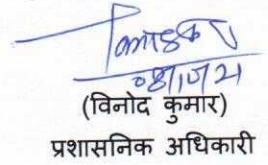 08/10/21
(विनोद कुमार)
प्रशासनिक अधिकारी